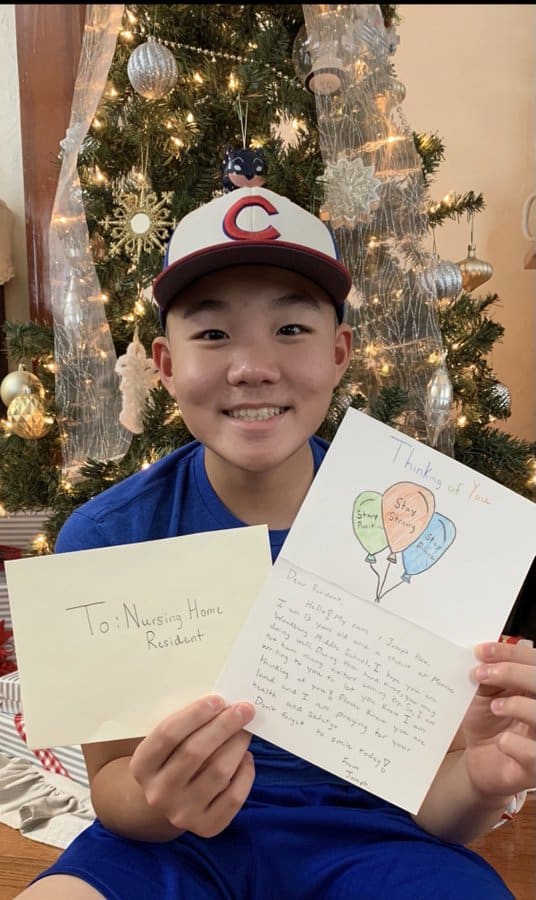 C
To: Nursing Home
Resident
Thinking of You
Stay
Stay
Strong
Stay
Dear Resident,
Hello! My name is Joseph
I am 13 years old and a student at Monroe
Woodbury Middle School. I hope you are
doing well. During these hard times, you may
not have many visitors coming by. So, I am
writing to you to let you know I am
thinking of you! Please know you are
loved and I am praying for your
health and safety.
Don't forget to smile today!
From
Joseph